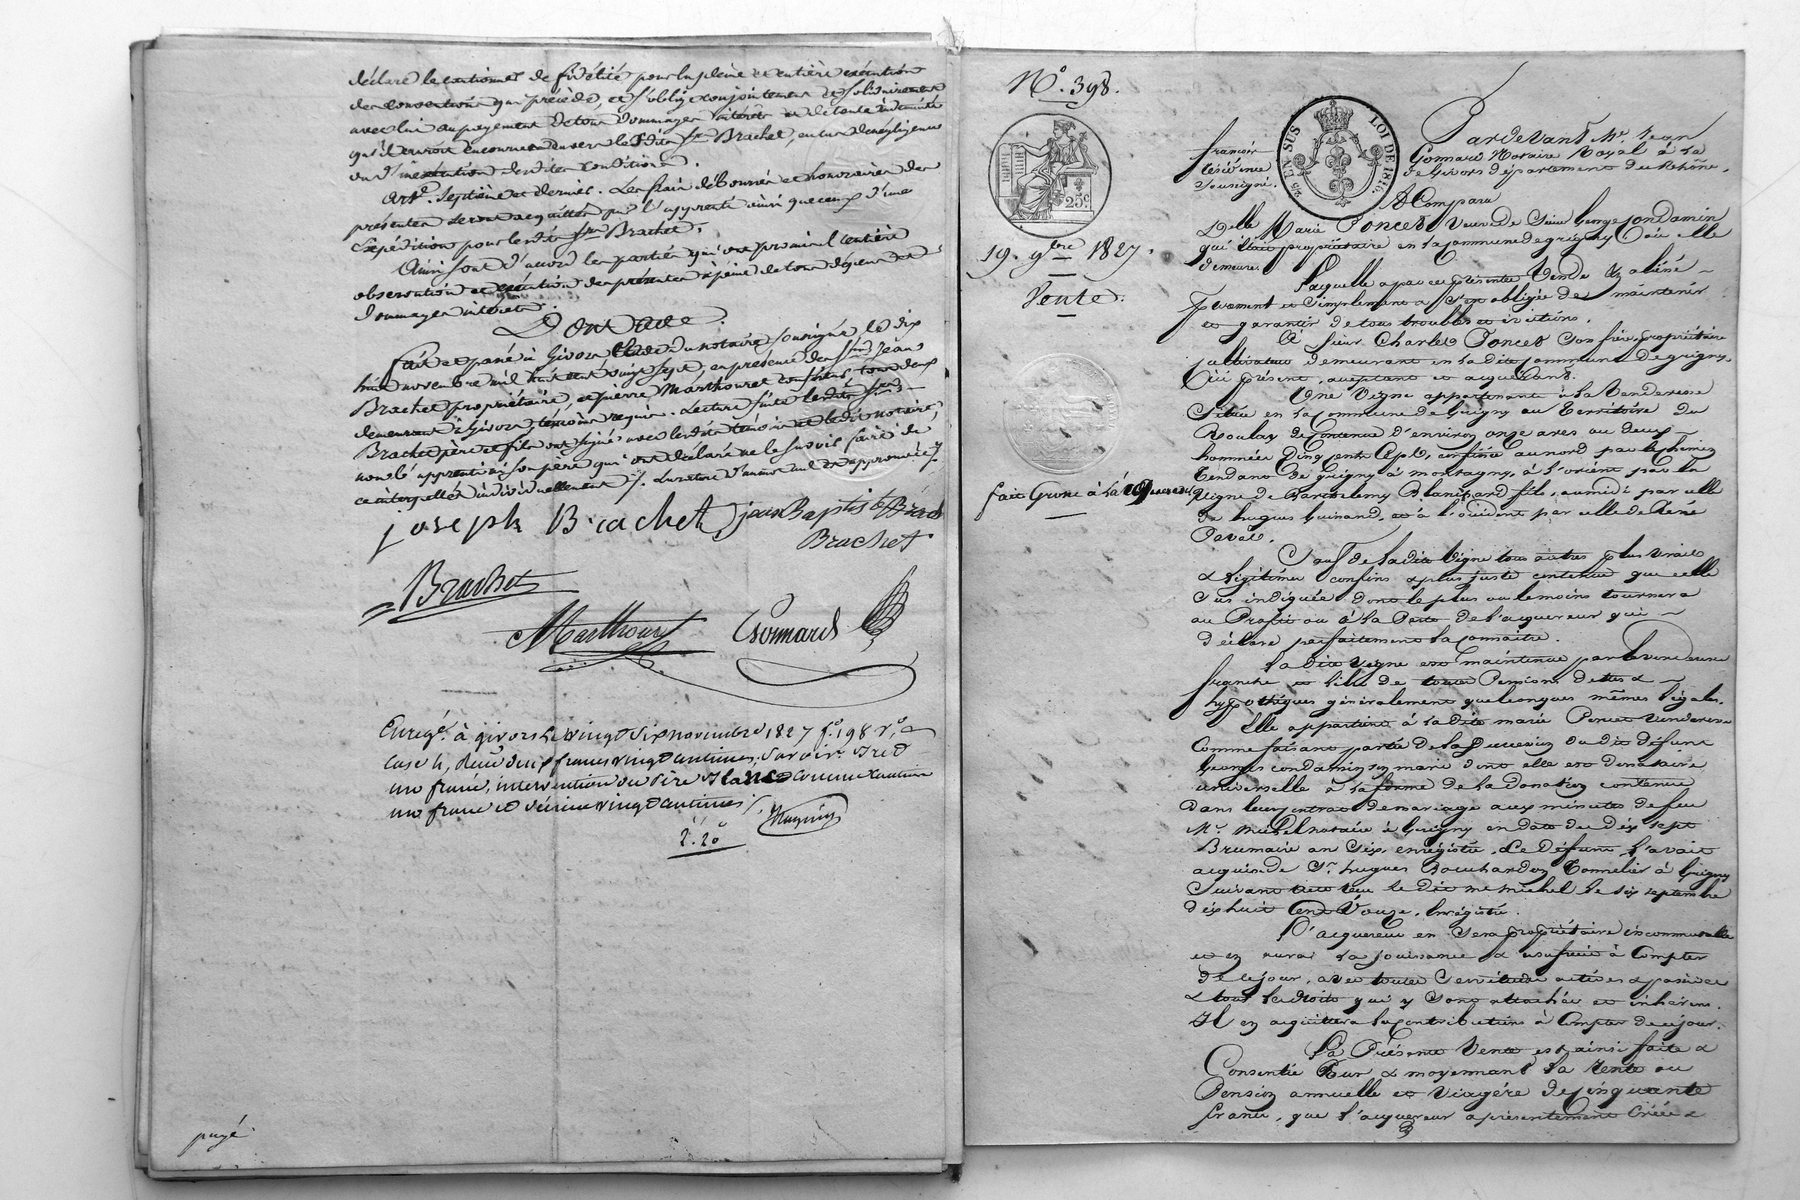 déclare le cautionner de fidélité pour la pleine et entière exécution
des conventions qui précède, et s'oblige conjointement et solidairement
avec lui au payement de tous dommages intérêts et de toute indemnité
qu'il auroit encourru envers le dit Sr Brachet, en cas de négligence
ou d'inexécution desdites conditions.
Art. Septième et dernier. Les frais déboursés et honoraires des
présentes seront acquittés par l'apprenti ainsi que ceux d'une
Expédition pour ledit Sr Brachet.
Ainsi sont d'accord les parties qui ont promis l'entière
observation et exécution des présentes à peine de tous dépens et
dommages intérêts.
Dont Acte.
Fait et passé à Givors Etude du notaire soussigné le dix
huit novembre mil huit cent vingt sept, en présence des Srs Jean
Brachet propriétaire, et pierre Marthouret tous deux
demeurant à Givors, témoins requis. Lecture faite lesdits Srs
Brachet père et fils ont signé avec lesdits témoins et ledit notaire,
non l'apprenti ni son père qui ont déclaré ne le savoir faire de
ce interpellés individuellement
joseph Brachet jean Baptiste
Brachet
Brachet
Marthouret Gomard
Enregé. à givors le vingt six novembre 1827 fo. 198 Ro.
case 4, reçu deux francs vingt centimes, savoir
un franc, intervention du père comme caution
un franc et décime vingt centimes
2.20
payé
No. 398.
19. 9bre 1827.
Vente.
25c
françois
résidence
soussigné.
EN SUS
LOI DE 1816.
Pardevant Me Jean
Gomard Notaire Royal à la
de Givors département du Rhône,
A Comparu
Delle Marie Poncet Veuve de Sieur George Jondamin
qui étoit propriétaire en la commune de grigny Où elle
demeure.
Laquelle a par ces présentes Vendu & aliéné
purement et simplement & s'est obligée de maintenir
et garantir de tous troubles et évictions,
A Sieur Charles Poncet Son frère propriétaire
cultivateur demeurant en la dite commune de grigny,
Ici présent, acceptant et acquérant.
Une Vigne appartenante à la Venderesse
Située en la commune de Grigny au territoire du
de contenue d'environ onze ares ou deux
hommées cinquante Sept, confinée au nord par le chemin
tendant de Grigny à montagny, à l'orient par la
Vigne de Barthelemy Blanchard fils, au midi par celle
de hugues Guinand, et à l'occident par celle de René
fait Grosse à la
Sauf de la dite Vigne tous autres plus vrais
& légitimes confins & plus juste contenue que celle
Sus indiquée dont le plus ou le moins tournera
au Profit ou à la Perte de l'acquéreur qui
déclare parfaitement la connaitre.
La dite Vigne est maintenue par la venderesse
franche et libre de toutes Pensions dettes &
hypothéques généralement quelconques mêmes légales.
Elle appartient à la dite marie Poncet Venderesse
Comme faisant partie de la Succession du dit défunt
George condamin son mari dont elle est donataire
universelle à la forme de la Donation contenue
dans leur contrat de mariage aux minutes de feu
Me. Michel notaire à Grigny en date du dix sept
Brumaire an Six, enregistré. Le Défunt l'avait
acquise de Sr. hugues Bouchardon tonnelier à Grigny
Suivant acte reçu le dit me michel le six septembre
dixhuit Cent Douze, Enregistré.
L'acquereur en sera propriétaire incommutable
et en aura la jouissance & usufruit à Compter
de ce jour, avec toutes Servitudes actives & passives
& tous les droits qui y sont attachés et inhérens.
Il en acquittera les contributions à Compter de ce jour.
La Présente Vente est ainsi faite &
Consentie Pour & moyennant la rente ou
Pension annuelle et viagère de cinquante
francs, que l'acquereur a présentement Créée &